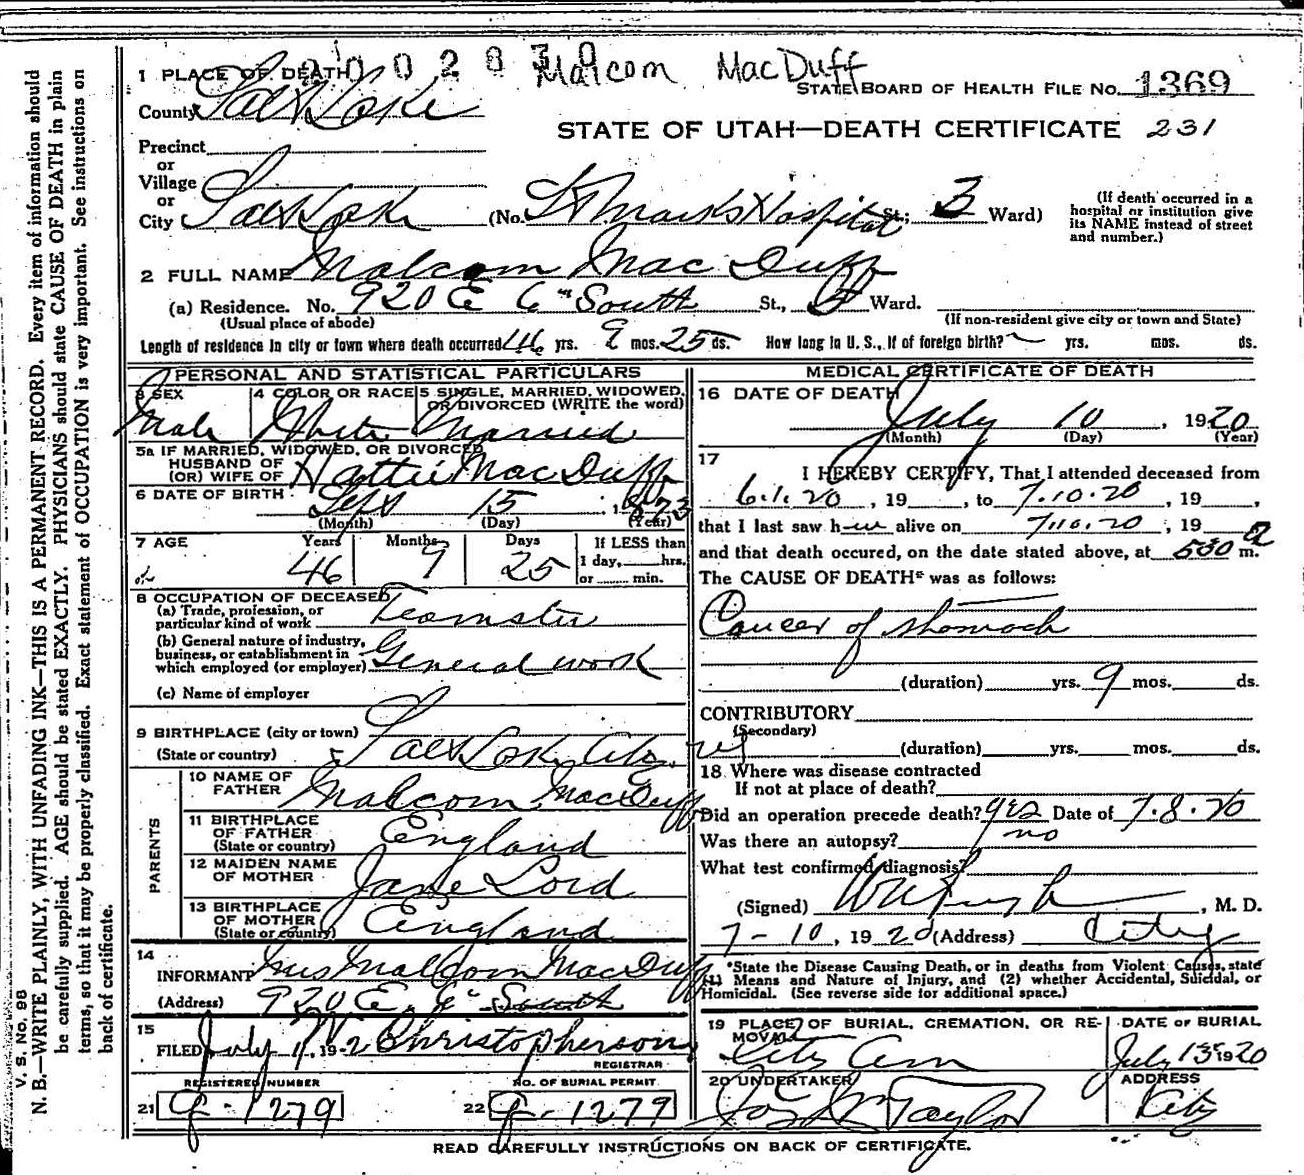 2 0 0 2 8 3 0
Malcom MacDuff
1 PLACE OF DEATH
STATE BOARD OF HEALTH FILE No. 1369
County Salt Lake
STATE OF UTAH—DEATH CERTIFICATE 231
Precinct
or
Village
or
City Salt Lake (No. St Marks Hospital St.; 3 Ward)
(If death occurred in a
hospital or institution give
its NAME instead of street
and number.)
2 FULL NAME Malcom Mac Duff
(a) Residence. No. 920 E 6th South St., 5 Ward.
(Usual place of abode)
(If non-resident give city or town and State)
Length of residence in city or town where death occurred 46 yrs. 9 mos. 25 ds. How long in U. S., if of foreign birth? yrs. mos. ds.
PERSONAL AND STATISTICAL PARTICULARS
3 SEX 4 COLOR OR RACE 5 SINGLE, MARRIED, WIDOWED,
OR DIVORCED (WRITE the word)
Male White Married
5a IF MARRIED, WIDOWED, OR DIVORCED
HUSBAND OF
(OR) WIFE OF Hattie MacDuff
6 DATE OF BIRTH Sept 15 1873
(Month) (Day) (Year)
7 AGE Years Months Days If LESS than
1 day, hrs.
or min.
46 9 25
8 OCCUPATION OF DECEASED
(a) Trade, profession, or
particular kind of work Teamster
(b) General nature of industry,
business, or establishment in
which employed (or employer) General work
(c) Name of employer
9 BIRTHPLACE (city or town)
(State or country) Salt Lake City
PARENTS
10 NAME OF
FATHER Malcom MacDuff
11 BIRTHPLACE
OF FATHER
(State or country) England
12 MAIDEN NAME
OF MOTHER Jane Lord
13 BIRTHPLACE
OF MOTHER
(State or country) England
14
INFORMANT Mrs Malcom MacDuff
(Address) 920 E. 6th South
15
FILED July 19 Christopherson
REGISTRAR
REGISTERED NUMBER NO. OF BURIAL PERMIT
21 G-1279 22 G-1279
MEDICAL CERTIFICATE OF DEATH
16 DATE OF DEATH
July 10, 1920
(Month) (Day) (Year)
17
I HEREBY CERTIFY, That I attended deceased from
6.1.20, 19, to 7.10.20, 19,
that I last saw him alive on 7.10.20, 19
and that death occured, on the date stated above, at 530 a m.
The CAUSE OF DEATH* was as follows:
Cancer of stomach
(duration) yrs. 9 mos. ds.
CONTRIBUTORY
(Secondary)
(duration) yrs. mos. ds.
18 Where was disease contracted
If not at place of death?
Did an operation precede death? yes Date of 7.8.20
Was there an autopsy? no
What test confirmed diagnosis?
(Signed) , M. D.
7-10, 1920 (Address) City
*State the Disease Causing Death, or in deaths from Violent Causes, state
(1) Means and Nature of Injury, and (2) whether Accidental, Suicidal, or
Homicidal. (See reverse side for additional space.)
19 PLACE OF BURIAL, CREMATION, OR RE-
MOVAL
City Cem
DATE OF BURIAL
July 13 1920
20 UNDERTAKER
Jos Wm Taylor
ADDRESS
City
READ CAREFULLY INSTRUCTIONS ON BACK OF CERTIFICATE.
V. S. No. 98
N. B.—WRITE PLAINLY, WITH UNFADING INK—THIS IS A PERMANENT RECORD. Every item of information should
be carefully supplied. AGE should be stated EXACTLY. PHYSICIANS should state CAUSE OF DEATH in plain
terms, so that it may be properly classified. Exact statement of OCCUPATION is very important. See instructions on
back of certificate.